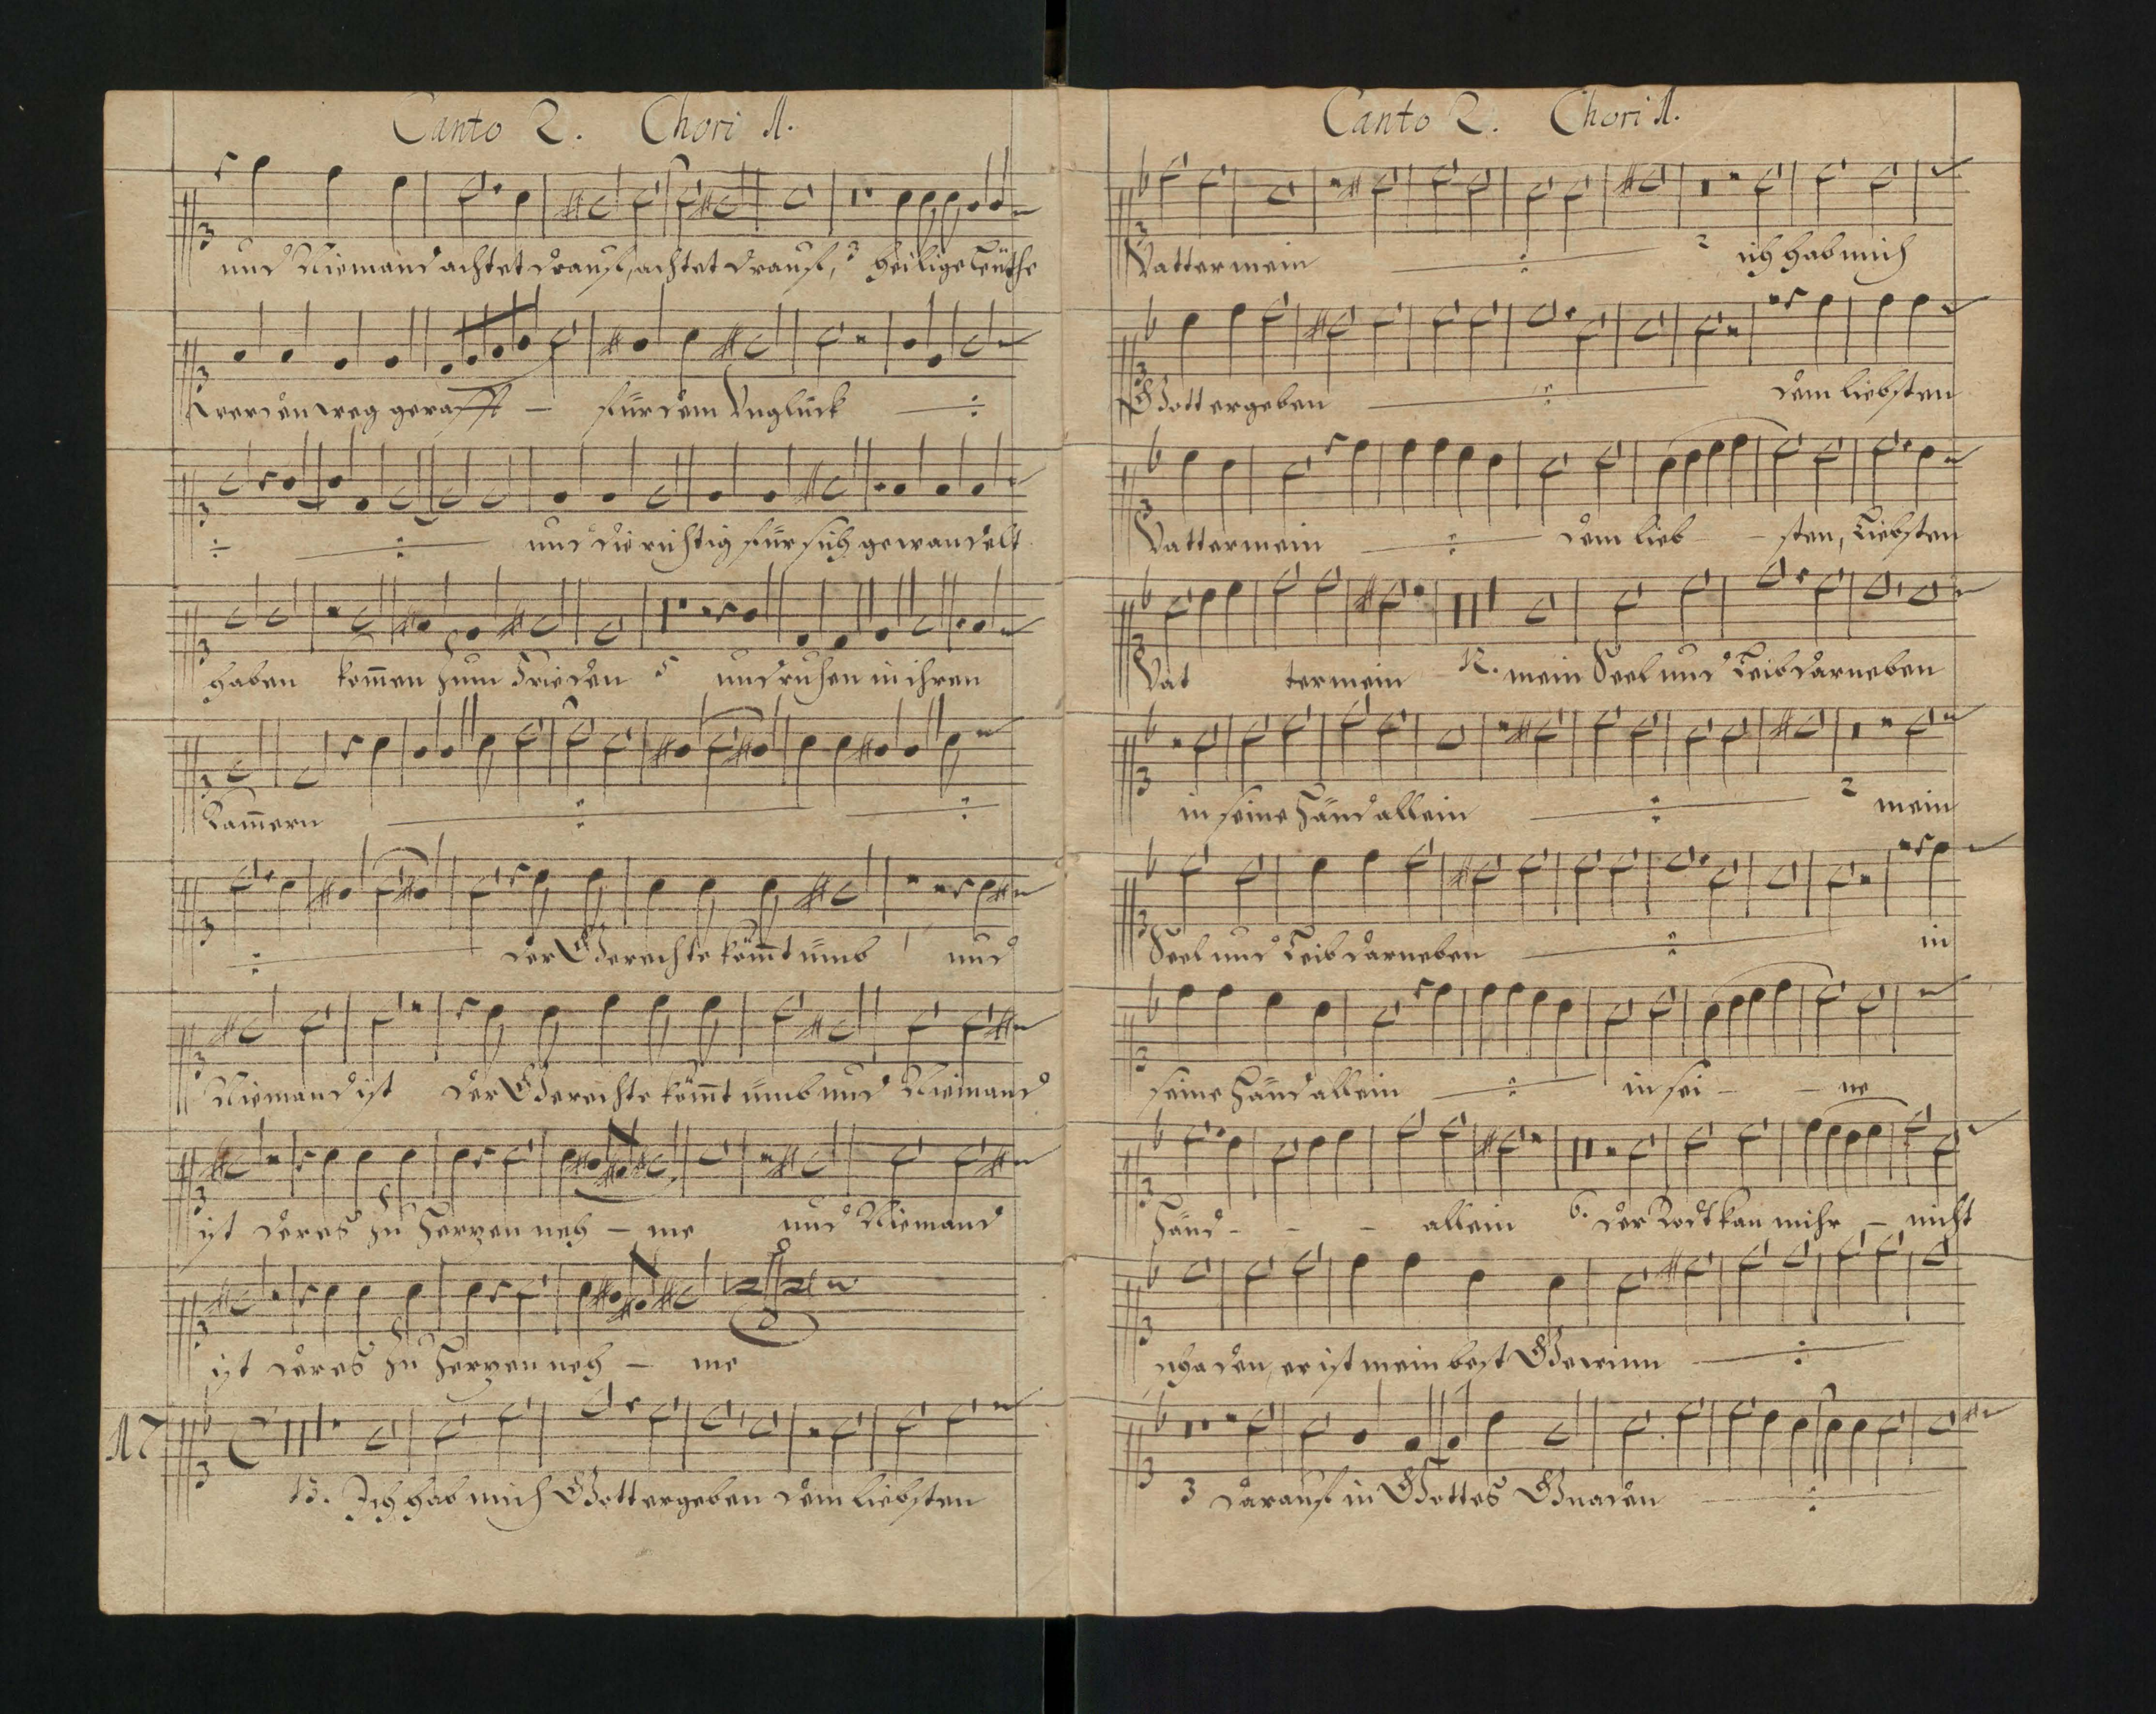 Canto 2. Chori 1.
und Niemand achtet drauff, achtet drauff, 3 heilige Leuthe
werden weg gerafft – für dem Unglück ÷
÷ ÷ und die richtig für sich gewandelt
haben kom̄en zum Frieden 5 und ruhen in ihren
Kam̄ern ÷ ÷
÷ der Gerechte köm̄t ümb und
Niemand ist der Gerechte köm̄t ümb und Niemand
ist der es zu Herzen neh – me und Niemand
ist der es zu Herzen neh – me
17
13. Ich hab mich Gott ergeben dem liebsten
Canto 2. Chori 1.
Vatter mein ÷ 2 ich hab mich
Gott ergeben ÷ dem liebsten
Vatter mein ÷ dem lieb – sten, Liebsten
Vat ter mein 12. mein Seel und Leib darneben
in seine Händ allein ÷ 2 mein
Seel und Leib darneben ÷ in
seine Händ allein ÷ in sei – – ne
Händ – – – allein 6. der Todt kan mihr – nicht
schaden, er ist mein best Gewinn ÷
3 darauff in Gottes Gnaden ÷